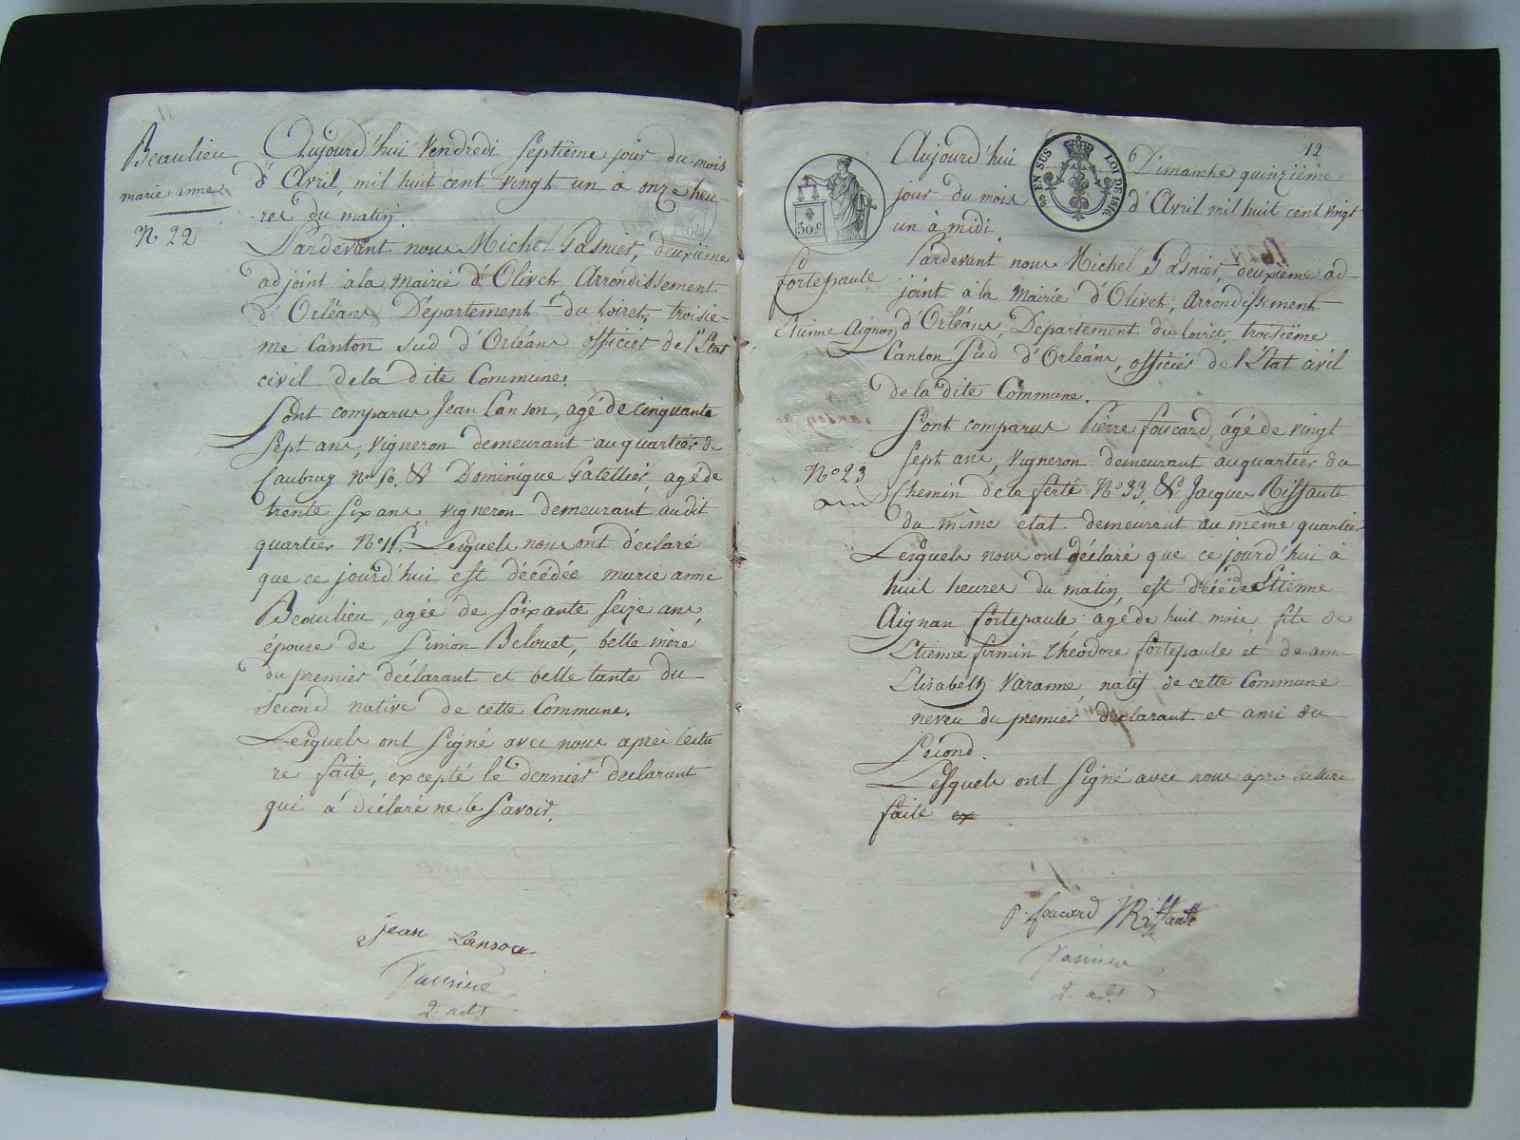 Beaulieu
marie anne
N. 22
Aujourd'hui Vendredi Septième jour du mois
d'Avril, mil huit cent vingt un à onze heu-
-res du matin
Pardevant nous Michel Pasnier, deuxième
adjoint à la Mairie d'Olivet, Arrondissement
d'Orléans Département du Loiret, troisiè-
me Canton Sud d'Orléans officier de l'Etat
civil de la dite Commune.
Sont comparus Jean Lanson, agé de cinquante
Sept ans, Vigneron demeurant au quartier de
Caubray No 16. & Dominique Patellier, agé de
trente Six ans vigneron demeurant au dit
quartier No 11. Lesquels nous ont déclaré
que ce jourd'hui est décédée marie anne
Beaulieu, agée de Soixante Seize ans,
épouse de Simon Belouet, belle mère
du premier déclarant et belle tante du
Second native de cette Commune.
Lesquels ont Signé avec nous après lectu
re faite, excepté le dernier déclarant
qui a déclaré ne le Savoir.
jean Lanson
Pasnier
2. adt
12
EN SUS
LOI DE 1816
50 c
Fortepaule
Etienne Aignan
No 23
Aujourd'hui Dimanche quinzième
jour du mois d'Avril mil huit cent vingt
un à midi.
Pardevant nous Michel Pasnier, deuxième ad-
joint à la Mairie d'Olivet, Arrondissement
d'Orléans, Département du Loiret, troisième
Canton Sud d'Orléans, officier de l'Etat civil
de la dite Commune.
Sont comparus Pierre foucard, agé de vingt
Sept ans, Vigneron demeurant au quartier du
Chemin de la ferté No 33, & Jacques Riffault
du même état demeurant au même quartier
Lesquels nous ont déclaré que ce jourd'hui à
huit heures du matin, est décédé Etienne
Aignan fortepaule agé de huit mois, fils de
Etienne firmin théodore fortepaule et de anne
Elisabeth Varanne, natif de cette Commune
neveu du premier déclarant et ami du
Second.
Lesquels ont Signé avec nous après lecture
faite ex
P. foucard J Riffault
Pasnier
2. adt